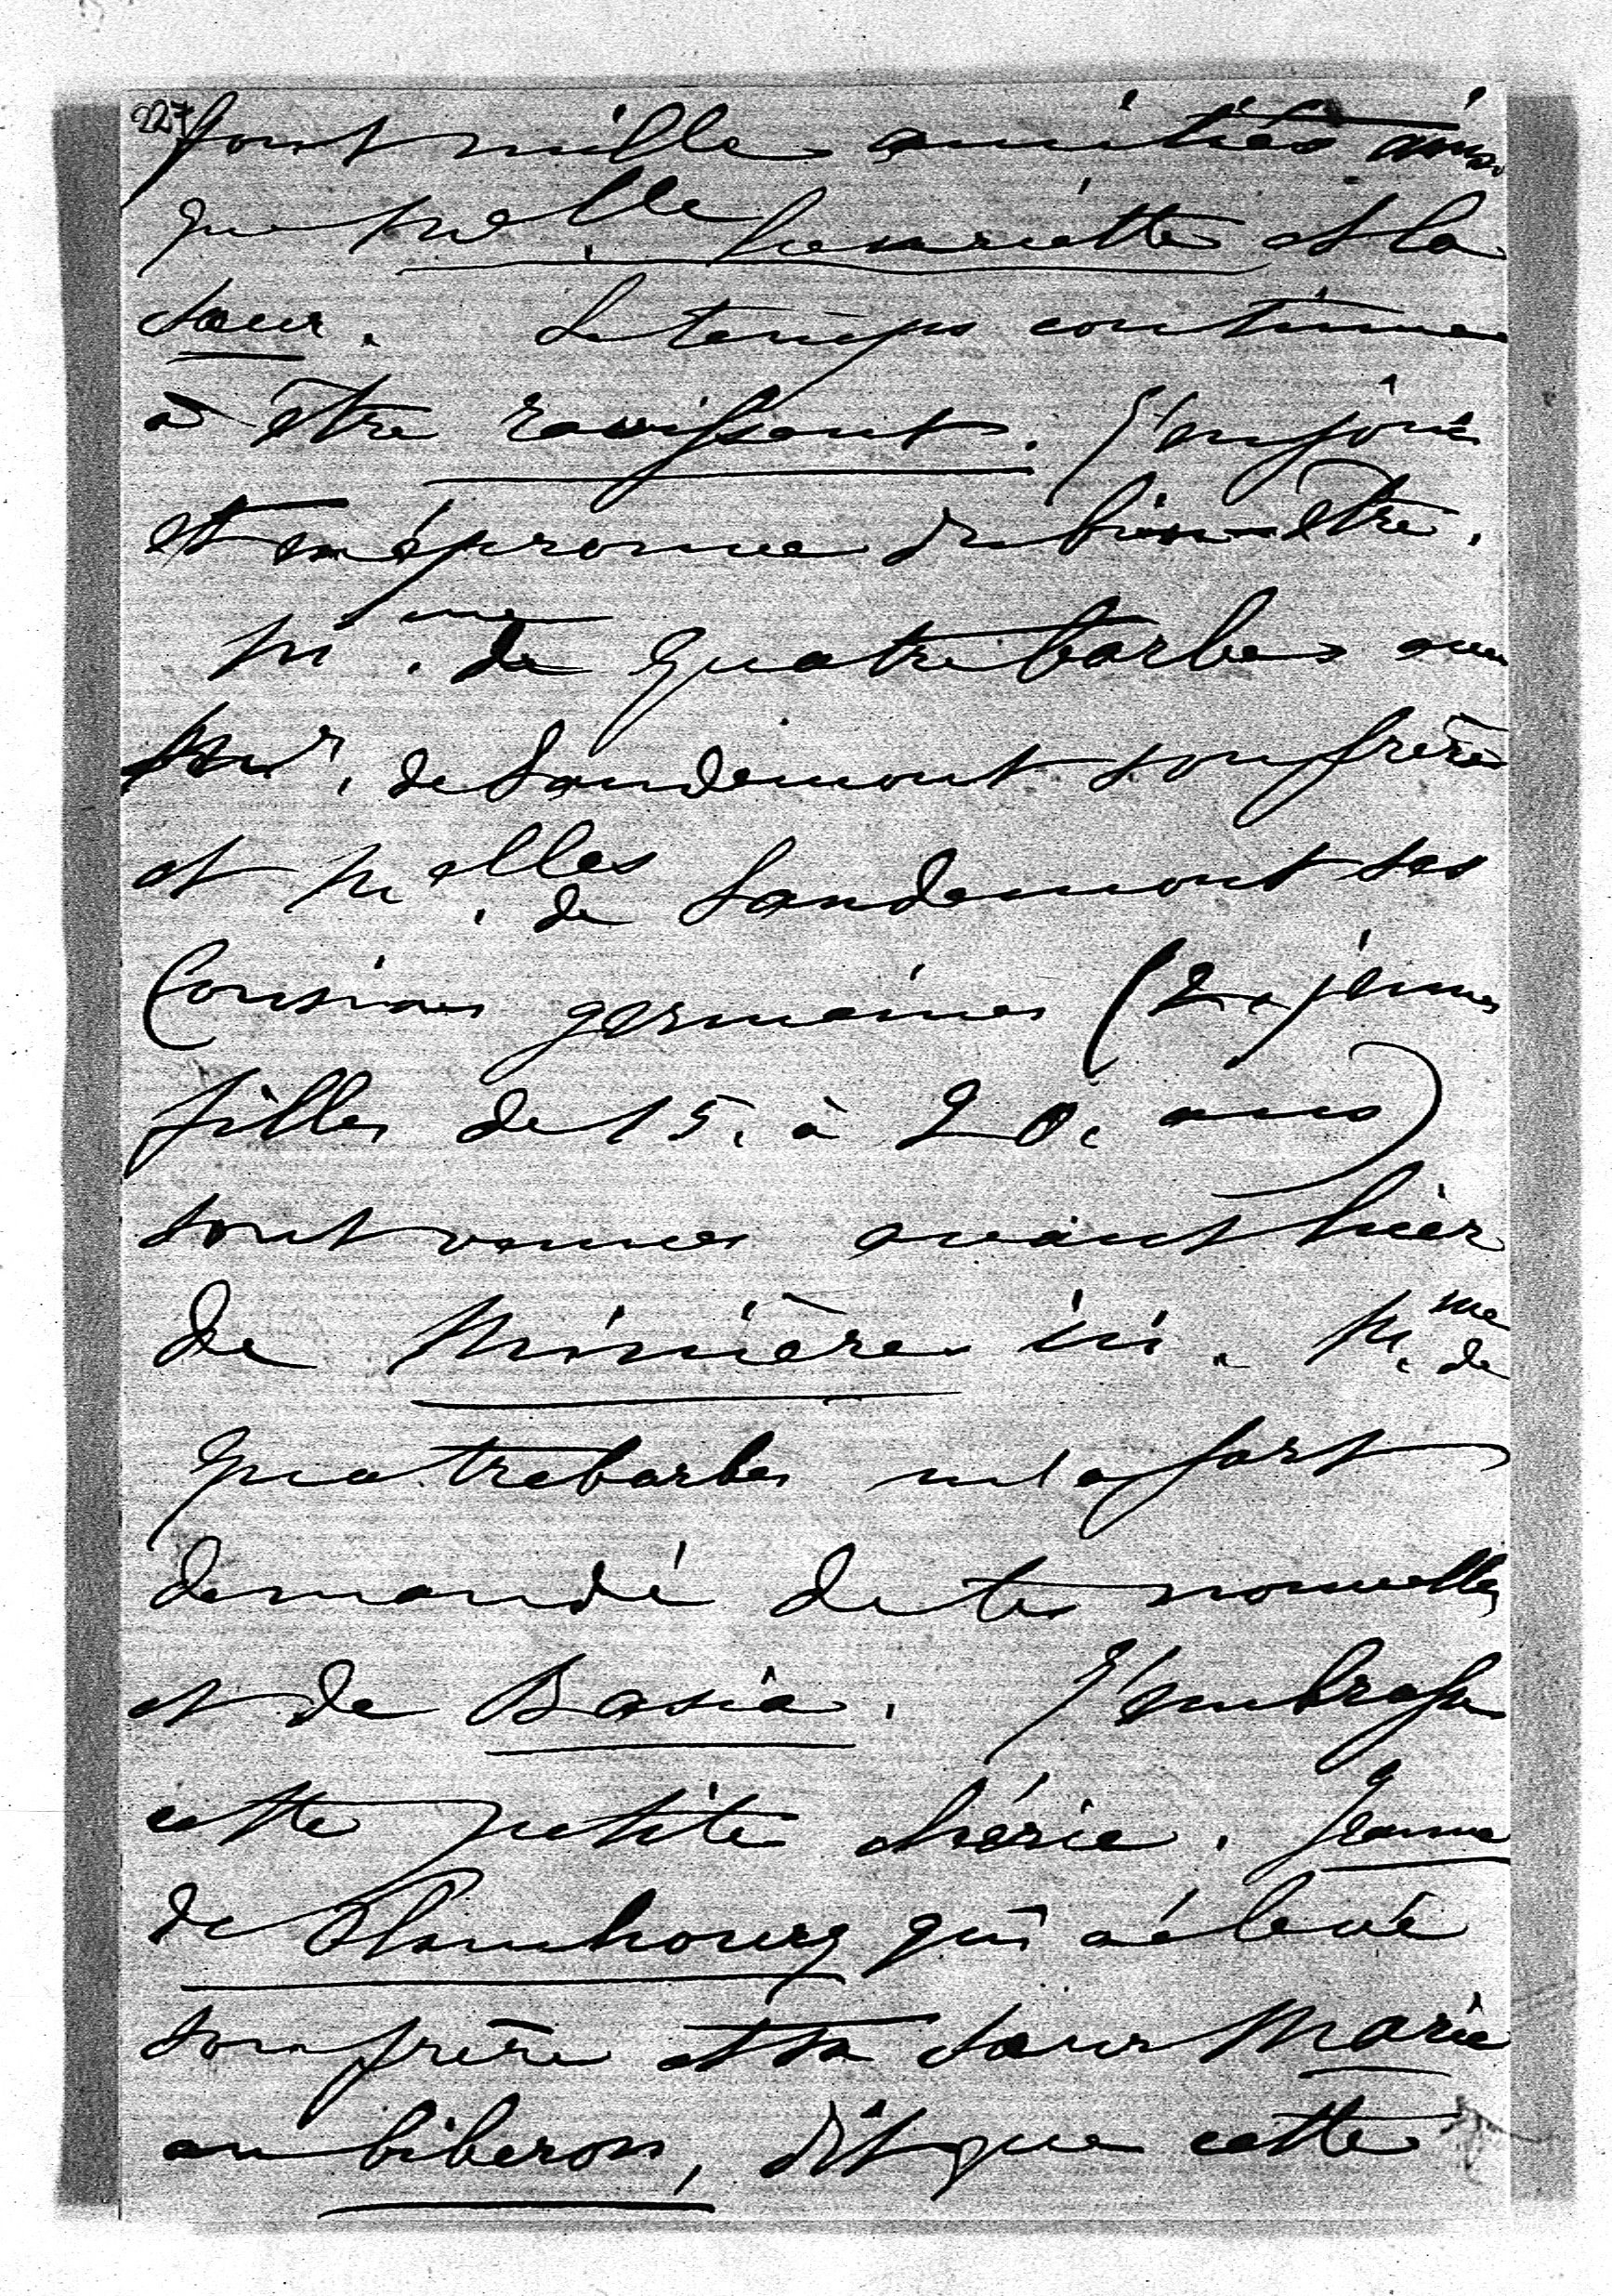 227
font mille amitiés ainsi
que Melle Henriette et la
sœur. Le temps continue
à être ravissant. J'en jouis
et en éprouve du bien-être.
Mme de Quatrebarbes avec
Mr. de Landemont son frère
et Melles de Landemont ses
Cousines germaines (2 jeunes
filles de 15. à 20. ans)
sont venues avant hier
de Minière ici. Mme de
Quatrebarbes m'a fort
demandé de tes nouvelles
et de Basia. J'embrasse
cette petite chérie. Jeanne
de qui a élevé
son frère et sa sœur Marie
au biberon, dit que cette